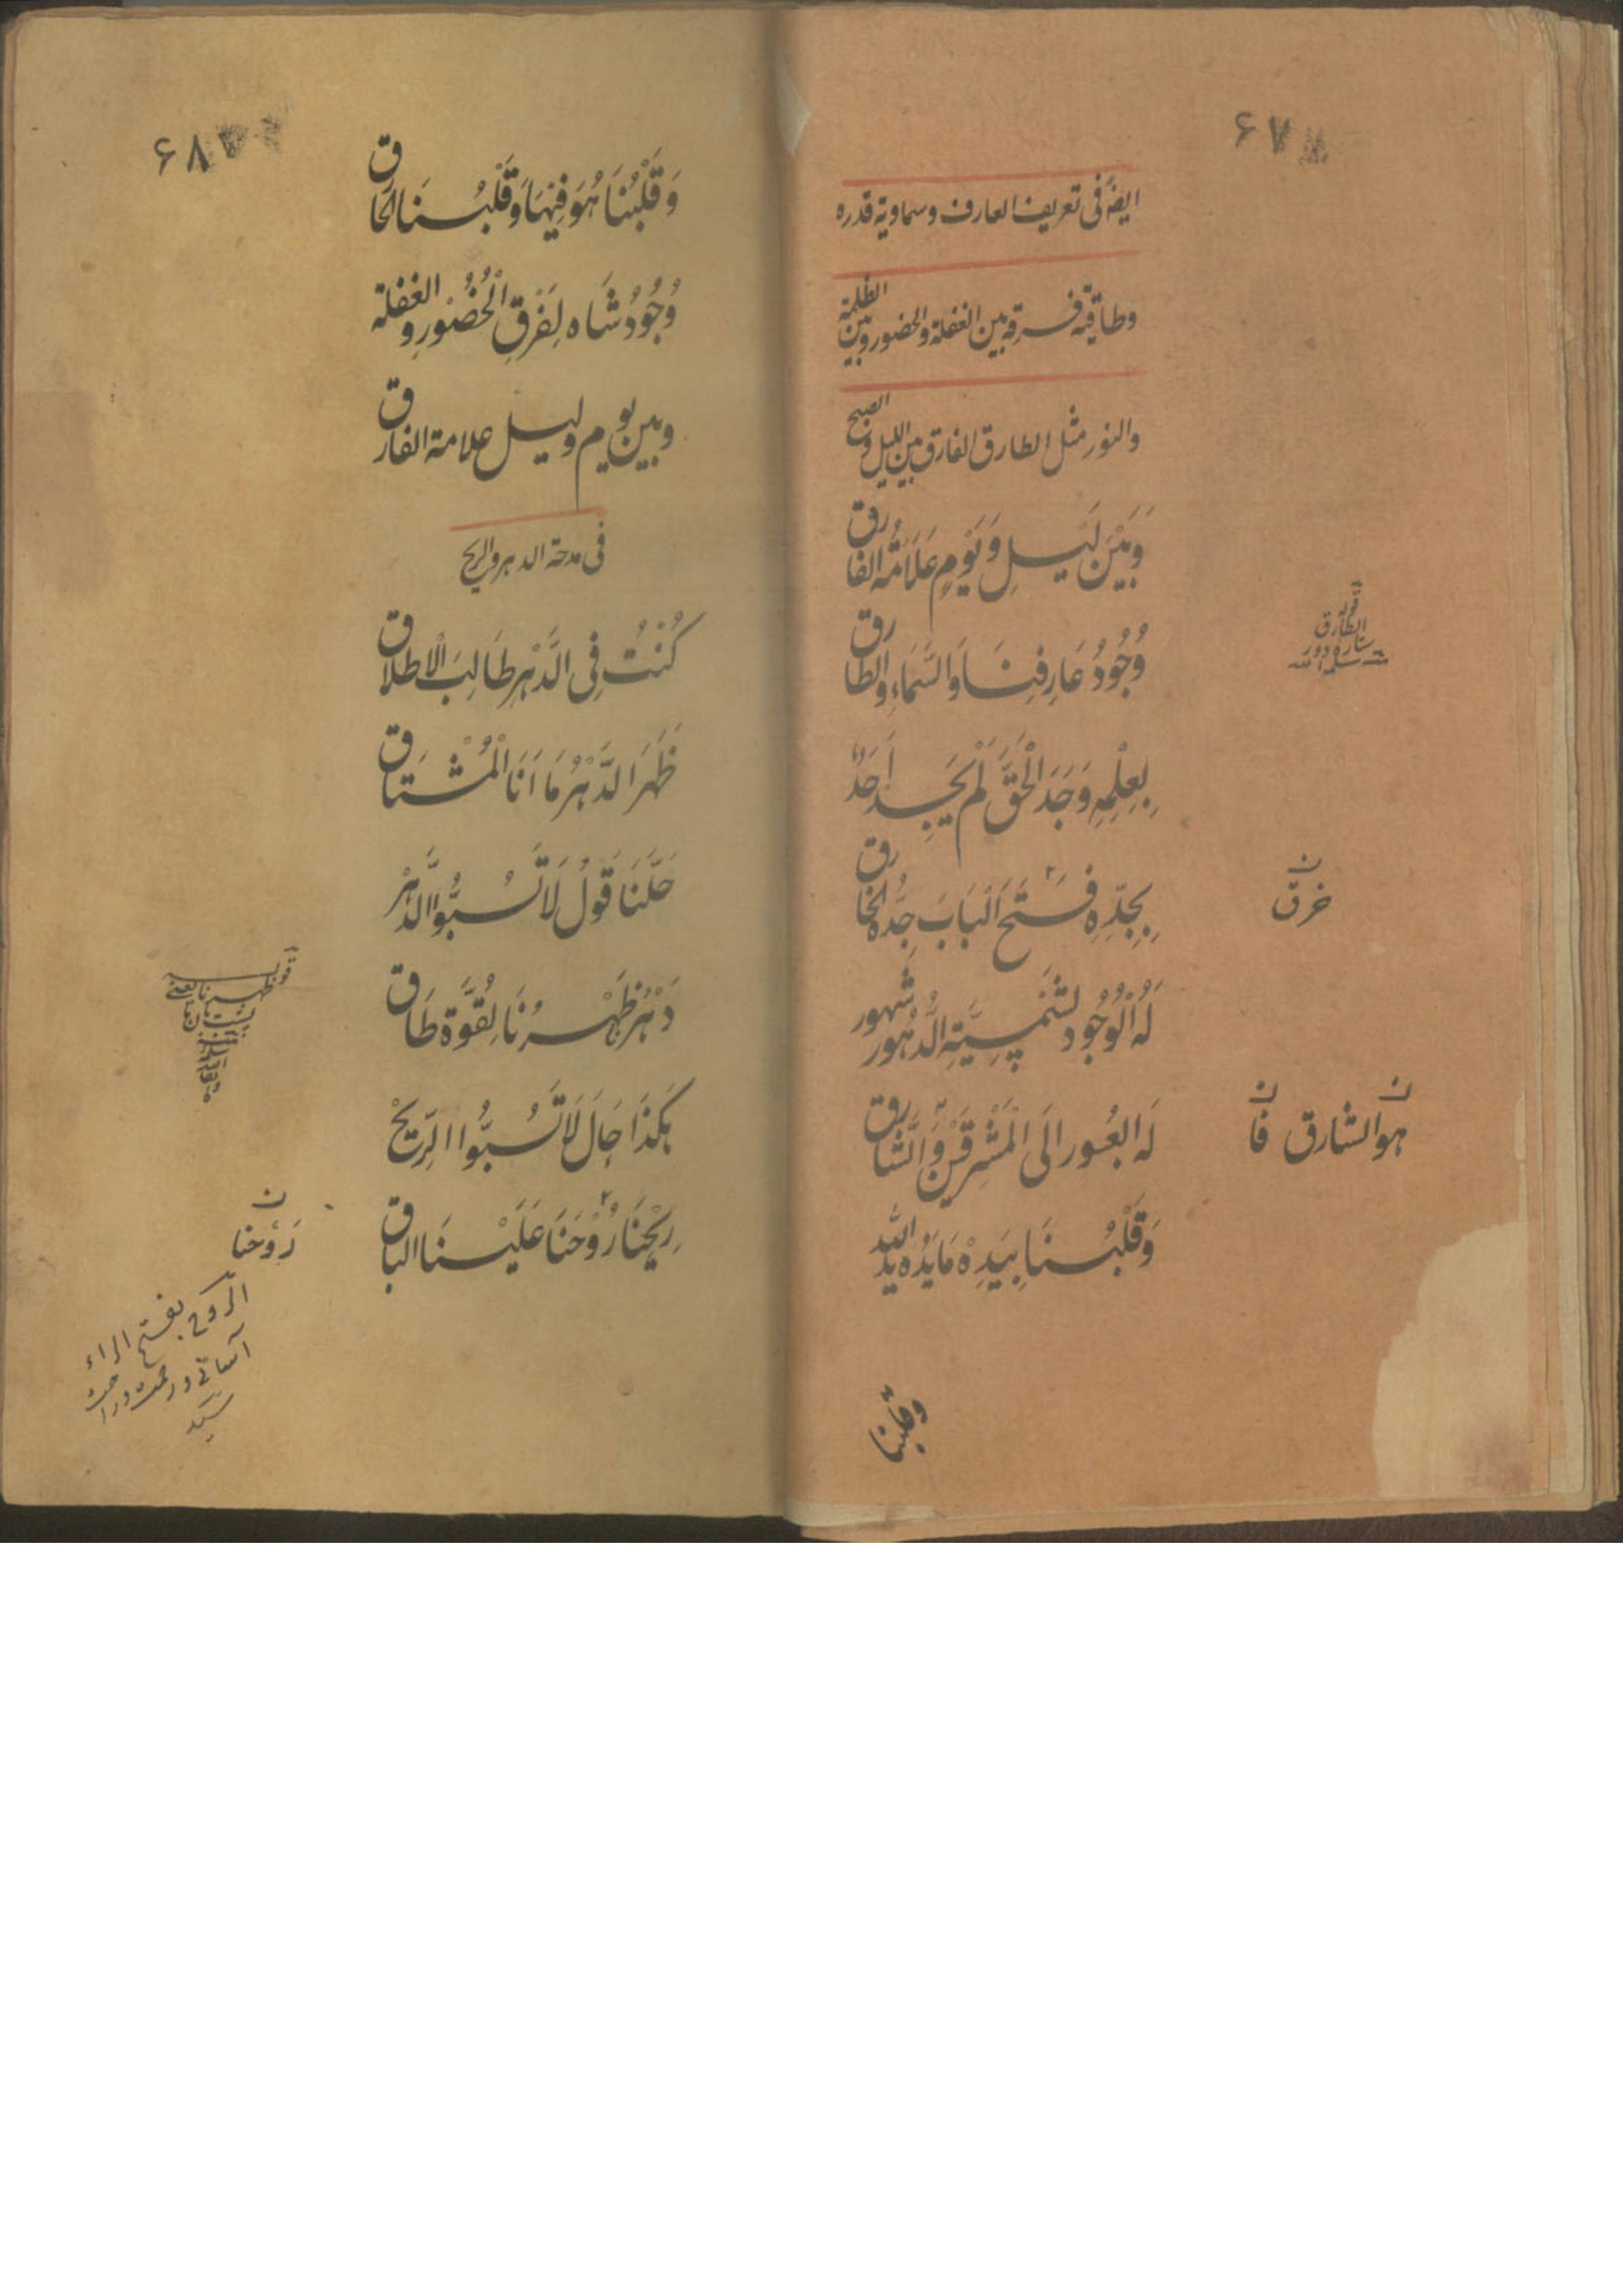 ۶۷
ایضا فی تعریف العارف وسماویة قدره
وطاقیة فرقه بین الغفلة والحضور وبین الظلمة
والنور مثل الطارق الفارق بین اللیل والصبح
وَبَیْنَ لَیْلٍ وَیَوْمٍ عَلَامَةُ الفَارق
وُجُودُ عَارِفِنَا وَالسَّمَاءِ وَالطَّارق
الطارق
بِعِلْمِهِ وَجَدَ الْحَقَّ لَمْ یَجِد اَحَدٌ
بِجِدِّهِ فَتَحَ الْبَابَ جِدُّهُ الخَارق
خرق
لَهُ الْوُجُود لشَمْسِیَّةِ الدُّهُور شهور
لَهُ العُبور الَی الْمَشْرِقَیْنِ وَالشَّارق
هو الشارق فا
وَقَلْبُنَا بِیَدِهْ مَا یَدُهُ یَدُ اللّه
وقلبنا
۶۸
وَقَلْبُنَا هُوَ فِیْهَا وَقَلْبُنَا الحَاق
وُجُودُ شَاه لِفَرْقِ الْحُضُورِ والغفلة
وبین یوم ولیل علامة الفارق
فی مدحة الدهر والریح
كُنْتُ فِی الدَّهْرِ طَالِبَ الْاِطلاق
ظَهَرَ الدَّهْرُ مَا اَنَا الْمُشْتَاق
حَلَّنَا قَوْلُ لَا تَسُبُّوا الدَّهْر
دَهْرُ ظَهْرُنَا لِقُوَّة طَاق
هٰكَذَا جَالَ لَا تَسُبُّوا الرِّیْحْ
رِیْحُنَا رُوْحُنَا عَلَیْنَا الباق
رَوْحُنا
الروح بفتح الراء
آسانی ورحمت وراحت
سید